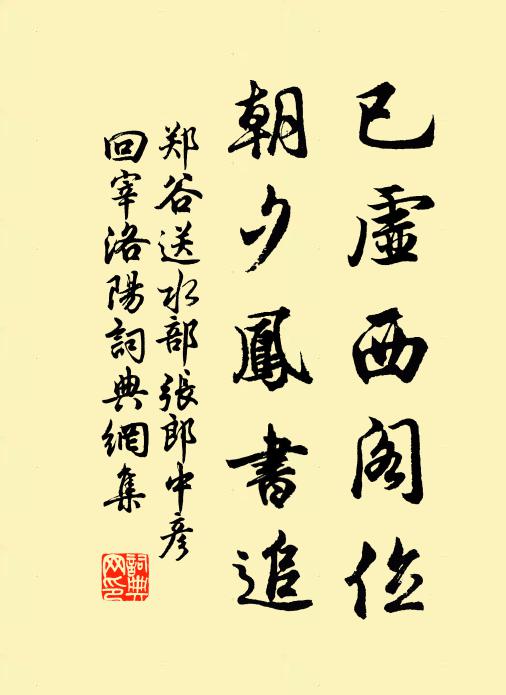 已虛西阁位
朝夕鳳書追
郑谷送水部張郎中彦
回宰洛陽詞典網集
詞典
网印